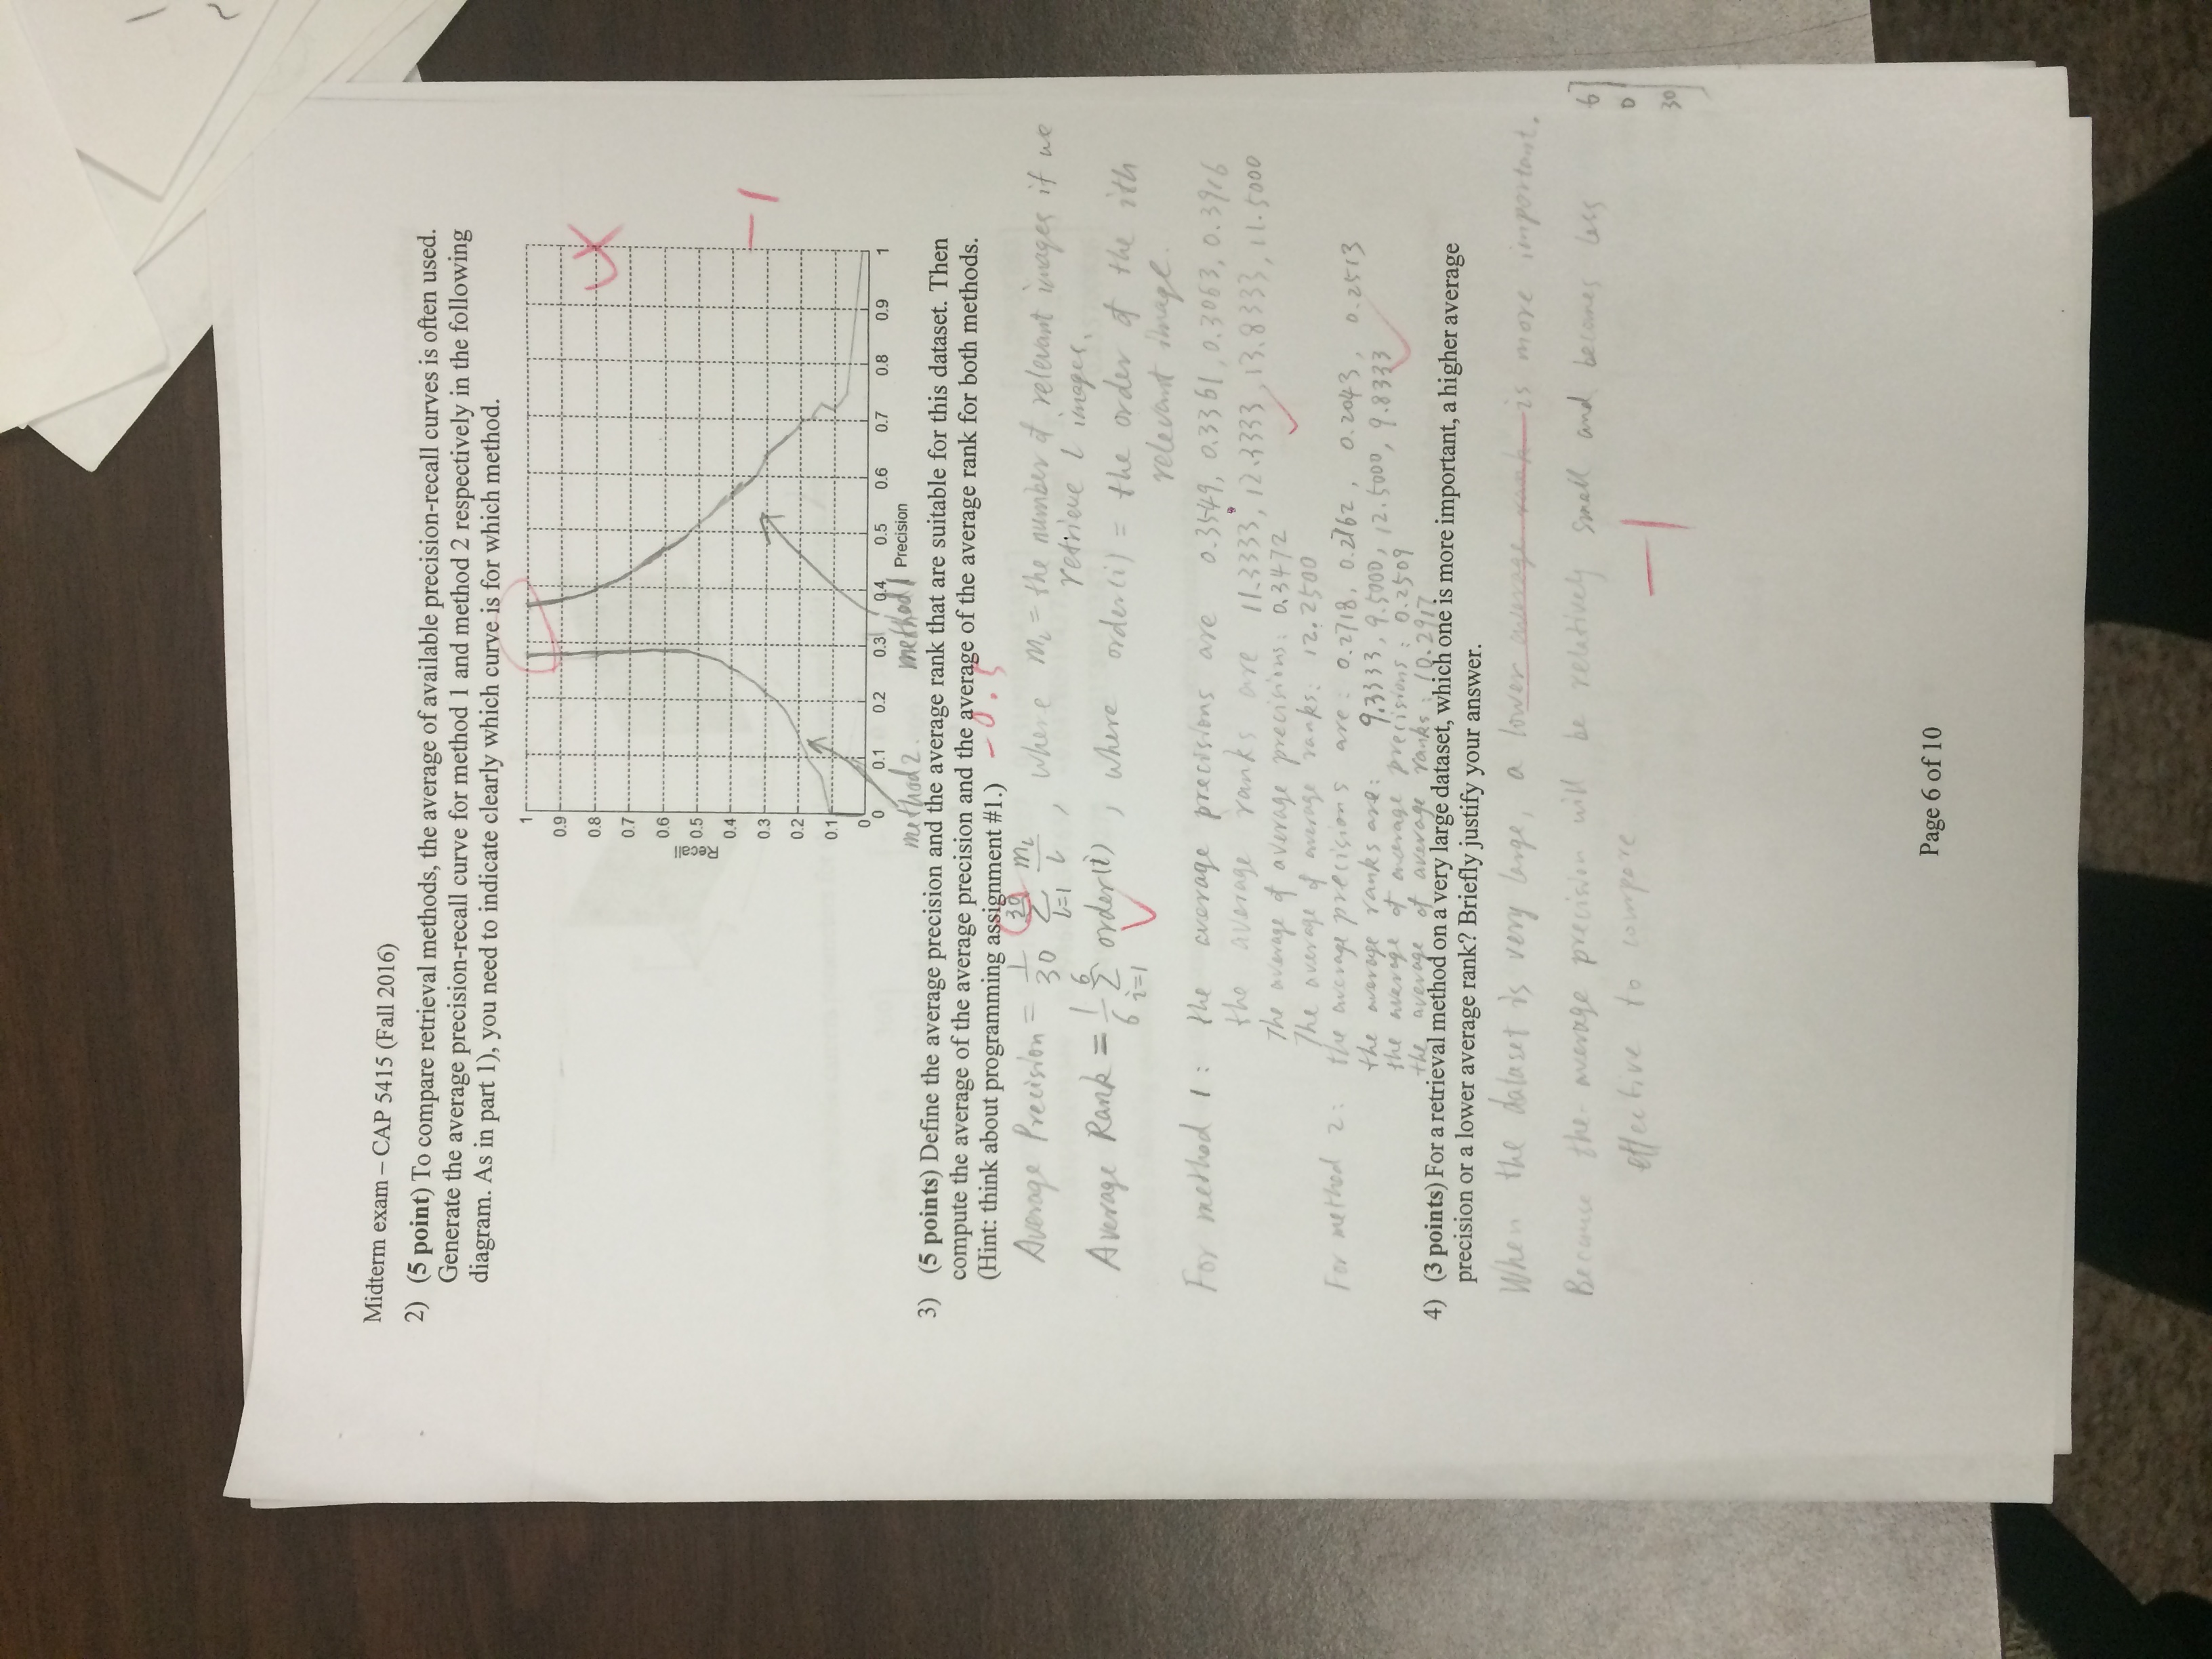 Midterm exam – CAP 5415 (Fall 2016)
2) (5 point) To compare retrieval methods, the average of available precision-recall curves is often used.
Generate the average precision-recall curve for method 1 and method 2 respectively in the following
diagram. As in part 1), you need to indicate clearly which curve is for which method.
1
0.9
0.8
0.7
0.6
0.5
0.4
0.3
0.2
0.1
0
Recall
0 0.1 0.2 0.3 0.4 0.5 0.6 0.7 0.8 0.9 1
Precision
method 2
method 1
-1
3) (5 points) Define the average precision and the average rank that are suitable for this dataset. Then
compute the average of the average precision and the average of the average rank for both methods.
(Hint: think about programming assignment #1.)
-0.5
Average Precision = 1/30 30∑i=1 mi/i , where mi = the number of relevant images if we
retrieve i images.
Average Rank = 1/6 6∑i=1 order(i) , where order(i) = the order of the ith
relevant image.
For method 1: the average precisions are 0.3549, 0.3361, 0.3063, 0.3916
the average ranks are 11.3333, 12.3333, 13.8333, 11.5000
The average of average precisions: 0.3472
The average of average ranks: 12.2500
For method 2: the average precisions are: 0.2718, 0.2762, 0.2043, 0.2513
the average ranks are: 9.3333, 9.5000, 12.5000, 9.8333
the average of average precisions: 0.2509
the average of average ranks: 10.2917
4) (3 points) For a retrieval method on a very large dataset, which one is more important, a higher average
precision or a lower average rank? Briefly justify your answer.
When the dataset is very large, a lower average rank is more important.
Because the average precision will be relatively small and becomes less
effective to compare
-1
6
0
30
Page 6 of 10